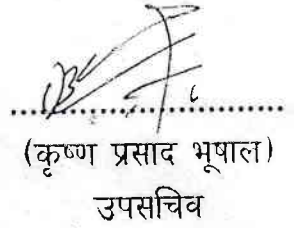 (कृष्ण प्रसाद भूषाल)
उपसचिव